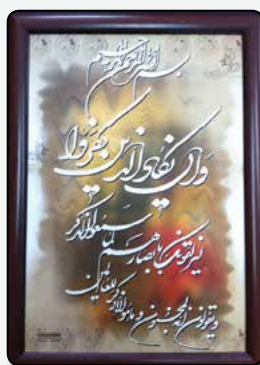 بسم الله الرحمن الرحیم
وان یکاد الذین کفروا
لیزلقونک بابصارهم لما سمعوا الذکر
و یقولون انه لمجنون و ما هو الا ذکر للعالمین